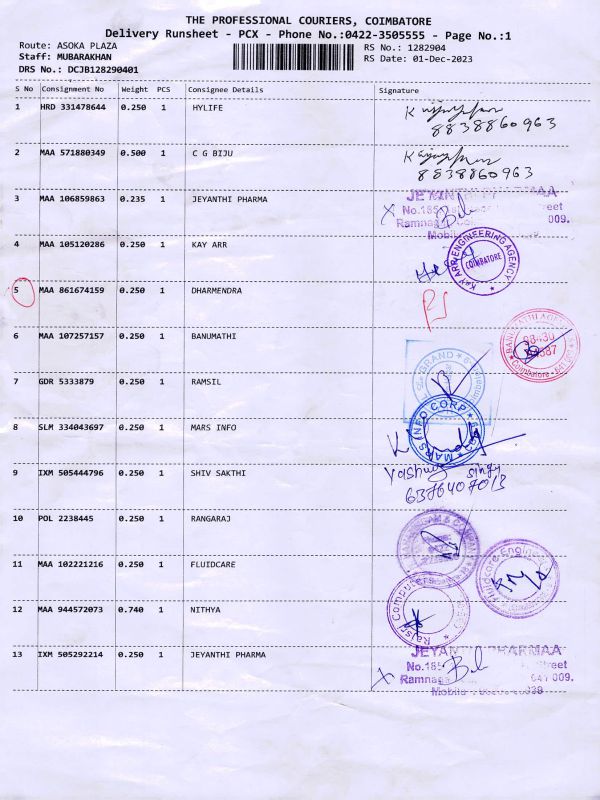 THE PROFESSIONAL COURIERS, COIMBATORE
Delivery Runsheet - PCX - Phone No.:0422-3505555 - Page No.:1
Route: ASOKA PLAZA
RS No.: 1282904
Staff: MUBARAKHAN
RS Date: 01-Dec-2023
DRS No.: DCJB128290401
S No Consignment No Weight PCS Consignee Details Signature
1 HRD 331478644 0.250 1 HYLIFE
8838860963
2 MAA 571880349 0.500 1 C G BIJU
8838860963
3 MAA 106859863 0.235 1 JEYANTHI PHARMA
No.185
Street
Ramnaga 009.
Mobile
4 MAA 105120286 0.250 1 KAY ARR
KAY ARR ENGINEERING AGENCY
COIMBATORE
5 MAA 861674159 0.250 1 DHARMENDRA
6 MAA 107257157 0.250 1 BANUMATHI
BANUMATHI
Coimbatore
7 GDR 5333879 0.250 1 RAMSIL
GRAND
8 SLM 334043697 0.250 1 MARS INFO
MARS INFO CORP
9 IXM 505444796 0.250 1 SHIV SAKTHI
6376407013
10 POL 2238445 0.250 1 RANGARAJ
11 MAA 102221216 0.250 1 FLUIDCARE
Fluidcore Engine
12 MAA 944572073 0.740 1 NITHYA
Rajsri Computers
13 IXM 505292214 0.250 1 JEYANTHI PHARMA
JEYANTHI PHARMAA
No.185 Street
Ramnaga 641 009.
Mobile